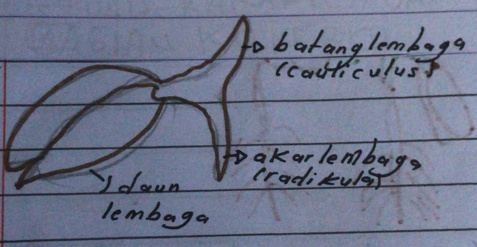 batang lembaga
(cauliculus)
akar lembaga
(radikula)
daun
lembaga